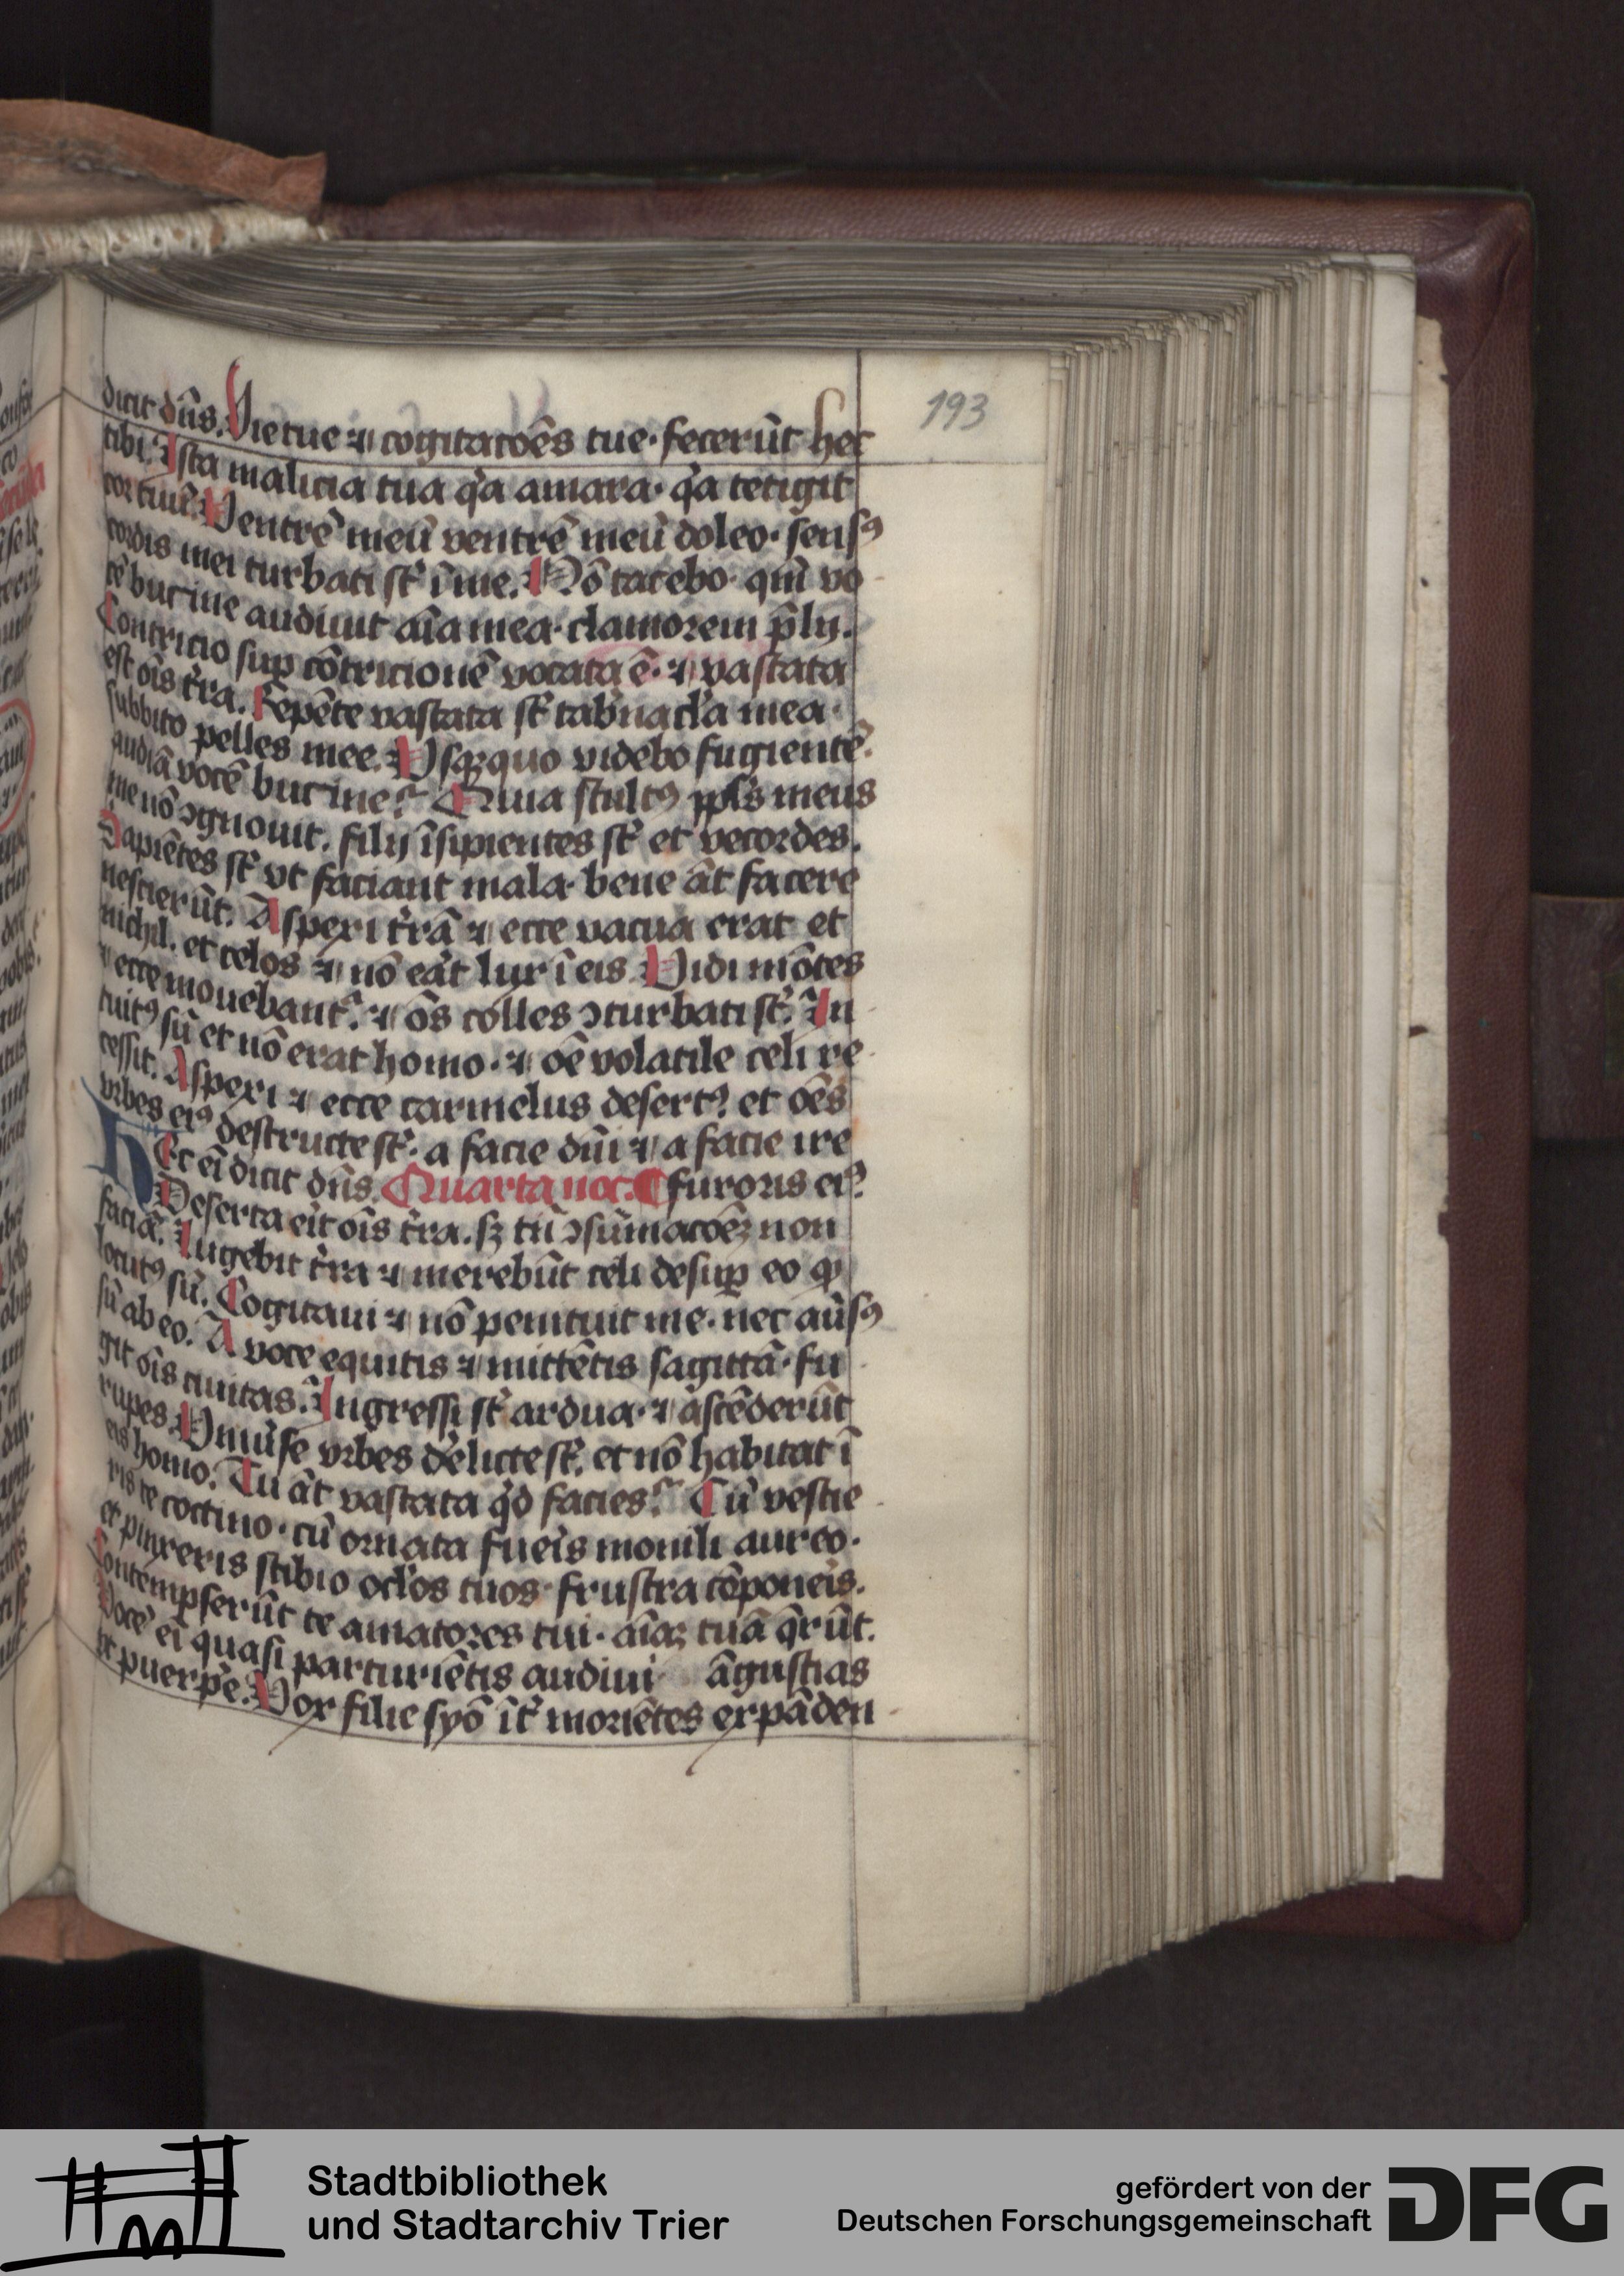 193
dicit dn̄s. Vie tue ⁊ cogitacōēs tue· fecerūt hec
tibi. Ista malicia tua q̇a amara· q̇a tetigit
cor tuū. Ventrē meū ventrē meū doleo· sensꝰ
cordis mei turbati st̄ ī me. Nō tacebo· qm̄ vo
cē bucine audiuit aīa mea· clamorem p̄lij.
Contricio suꝑ cōtricionē vocata ē· ⁊ vastata
est oīs t̄ra. Repēte vastata st̄ tab̄nacl̄a mea·
subbito pelles mee. Vsqꝫquo videbo fugientē.
audiā vocē bucine? Quia stultꝰ ppl̄s meus
me nō ꝯgnouit. filij īsipientes st̄ et vecordes.
Sapiētes st̄ vt faciant mala· bene āt facere
nescierūt. Aspexi t̄rā ⁊ ecce vacua erat et
nichil. et celos ⁊ nō eāt lux ī eis. Vidi mōtes
⁊ ecce mouebant̄. ⁊ oēs colles ꝯturbati st̄. In
tuitꝰ sū et nō erat homo· ⁊ oē volatile celi re
cessit. Aspexi ⁊ ecce carmelus desertꝰ et oēs
vrbes eiꝰ destructe st̄· a facie dn̄i ⁊ a facie ire
Hec eī dicit dn̄s. Quarta noc. furoris eiꝰ.
Deserta eīt oīs t̄ra. sꝫ tn̄ ꝯsūmacōēꝫ non
faciā. Lugebit t̄ra ⁊ merebūt celi desuꝑ eo ꝙ
locutꝰ sū. Cogitaui ⁊ nō penituit me· nec aūsꝰ
sū ab eo. A voce equitis ⁊ mittētis sagittā· fu
git oīs ciuitas. Ingressi st̄ ardua· ⁊ ascēderūt
rupes. Vniūse vrbes delicte st̄. et nō habitat ī
eis homo. Tu āt vastata q̇d facies? Cū vestie
ris te coccino· cū ornata fueīs monili aureo·
et pinxeris stibio ocl̄os tuos· frustra cōponeīs.
Contempserūt te amatores tui· aīaꝫ tuā q̄rūt.
Vocē eī quasi parturiētis audiui āgustias
vt puerp̄e. Vox filie syō īt̄ moriētes expāden
Stadtbibliothek
und Stadtarchiv Trier
gefördert von der
Deutschen Forschungsgemeinschaft
DFG